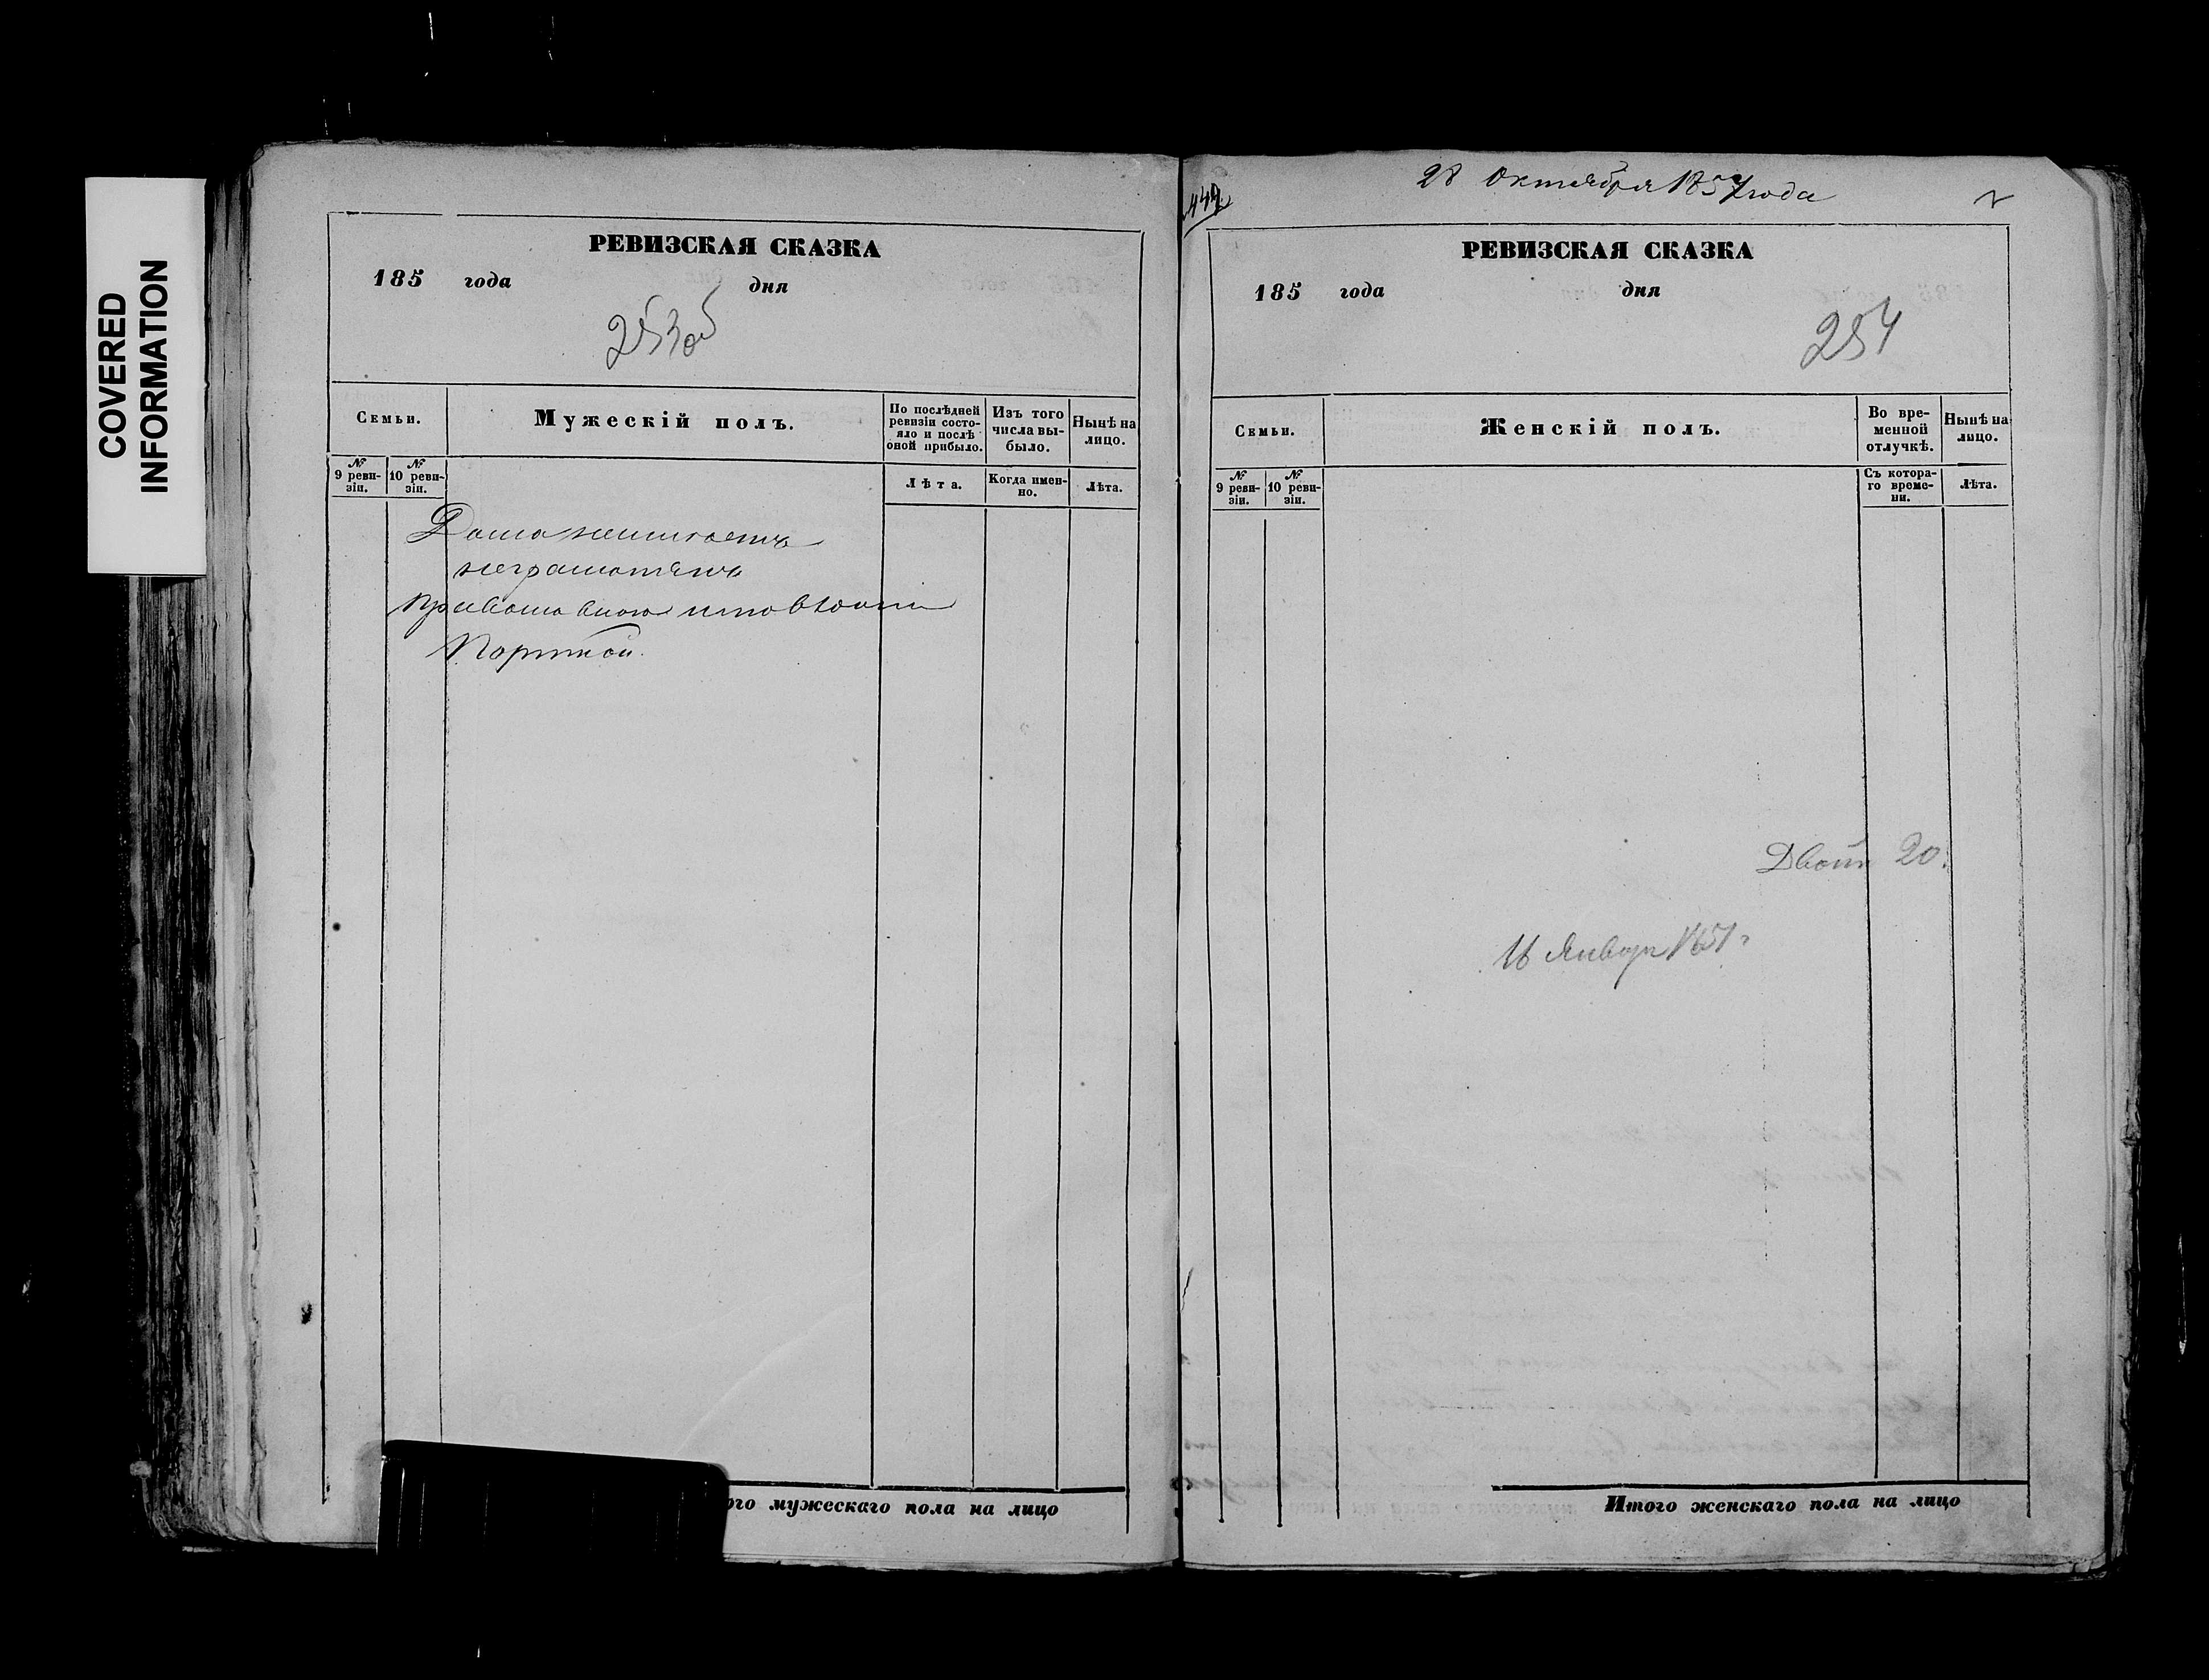 COVERED
INFORMATION
РЕВИЗСКАЯ СКАЗКА
185 года дня
253об
Семьи.
Мужескій полъ.
По послѣдней
ревизіи состо-
яло и послѣ
оной прибыло.
Изъ того
числа вы-
было.
Нынѣ на
лицо.
№
9 реви-
зіи.
№
10 реви-
зіи.
Лѣта.
Когда имен-
но.
Лѣта.
неграмотенъ
Портной.
мужескаго пола на лицо
28 Октября 1857 года
РЕВИЗСКАЯ СКАЗКА
185 года дня
254
Семьи.
Женскій полъ.
Во вре-
менной
отлучкѣ.
Нынѣ на
лицо.
№
9 реви-
зіи.
№
10 реви-
зіи.
Съ котора-
го време-
ни.
Лѣта.
20.
16 Январ
Итого женскаго пола на лицо